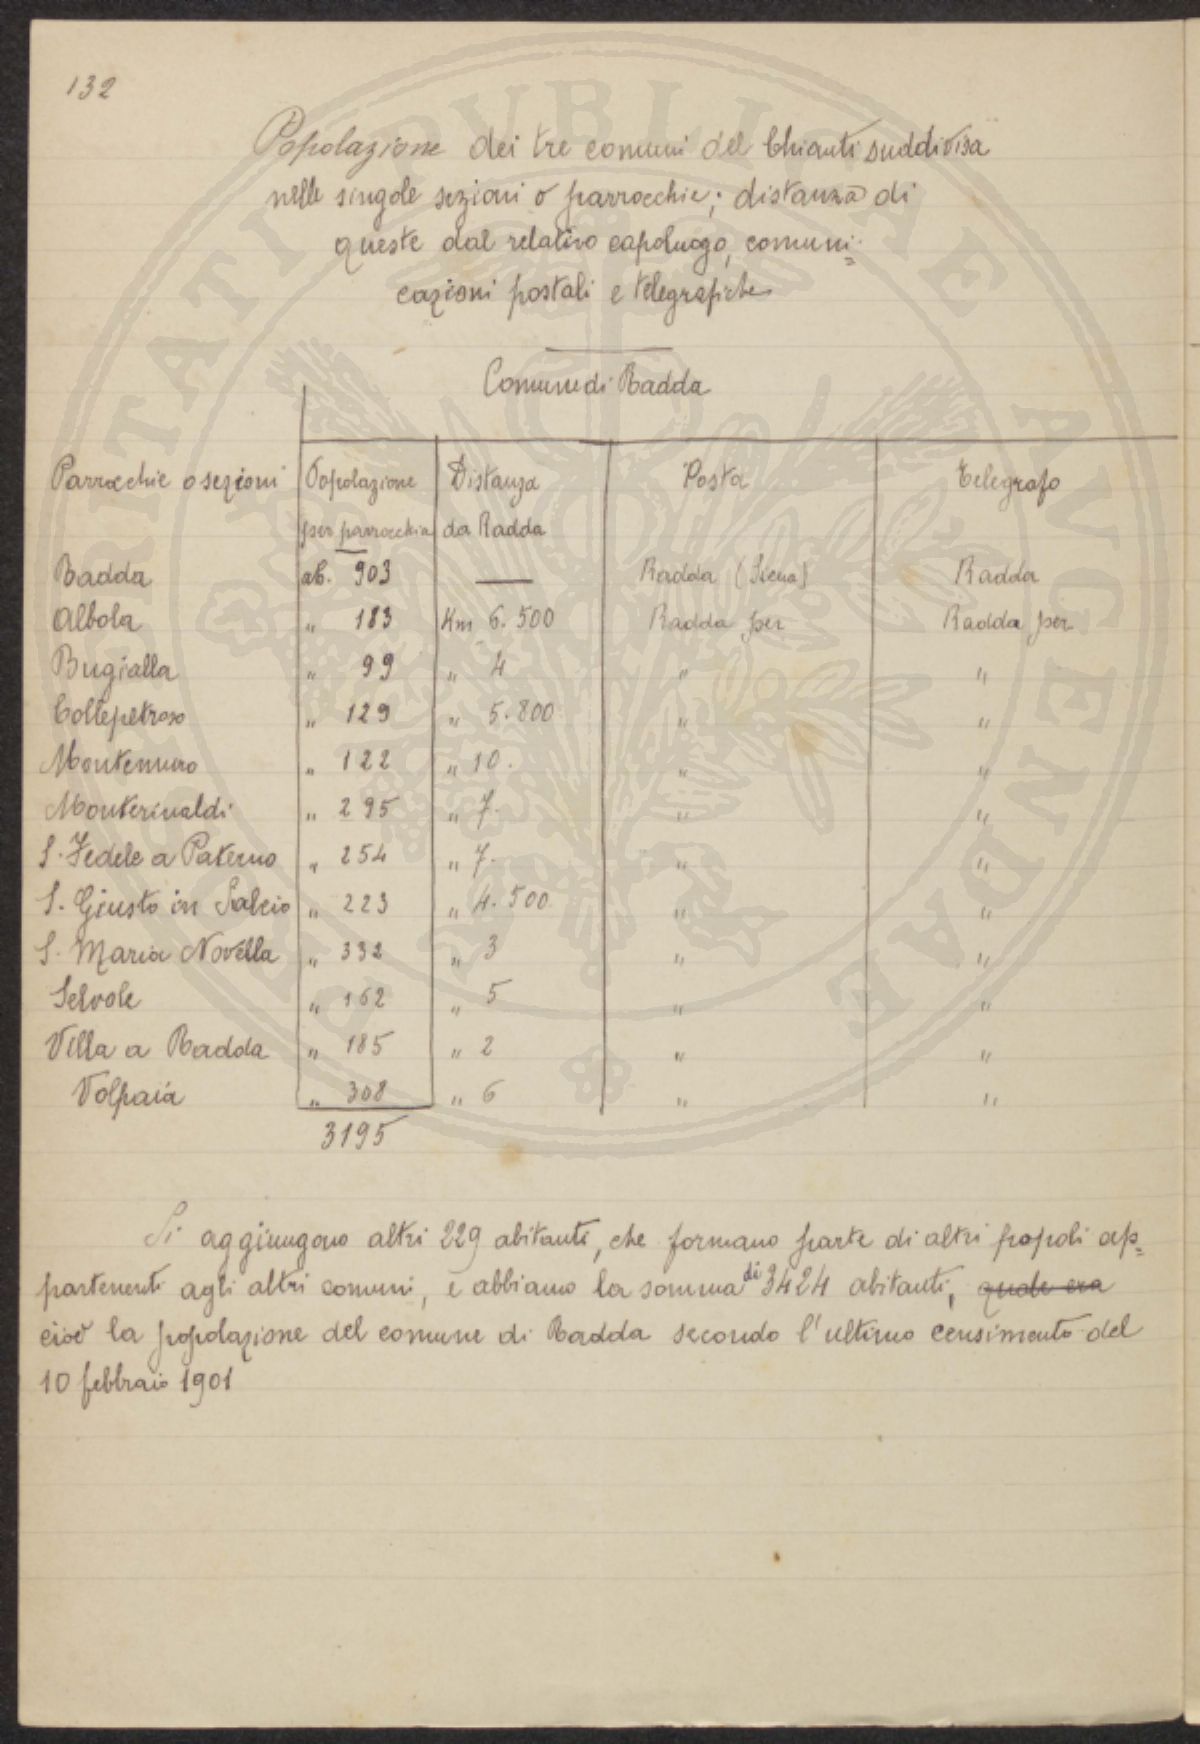 132
Popolazione dei tre comuni del Chianti suddivisa
nelle singole sezioni o parrocchie; distanza di
queste dal relativo capoluogo, comuni=
cazioni postali e telegrafiche
Comune di Radda
Parrocchie o sezioni Popolazione per parrocchia Distanza da Radda Posta Telegrafo
Radda ab. 903 — Radda (Siena) Radda
Albola " 183 Km 6.500 Radda per Radda per
Bugialla " 99 " 4 " "
Collepetroso " 129 " 5.800 " "
Montemuro " 122 " 10. " "
Monterinaldi " 295 " 7. " "
S. Fedele a Paterno " 254 " 7. " "
S. Giusto in Salcio " 223 " 4.500 " "
S. Maria Novella " 332 " 3 " "
Selvole " 162 " 5 " "
Villa a Radda " 185 " 2 " "
Volpaia " 308 " 6 " "
3195
Si aggiungono altri 229 abitanti, che formano parte di altri popoli ap=
partenenti agli altri comuni, e abbiamo la somma di 3424 abitanti, quale era
cioè la popolazione del comune di Radda secondo l'ultimo censimento del
10 febbraio 1901
VERITATI PVBLICAE AVGENDAE